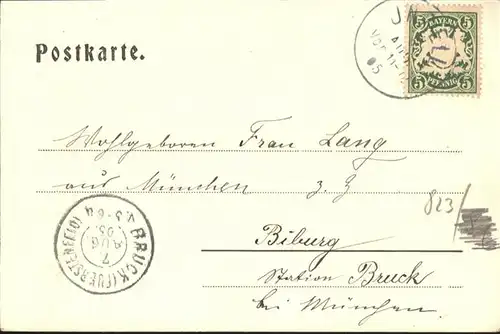 Postkarte.
BAYERN
5 5
PFENNIG
5 5
Wohlgeboren Frau Lang
aus München z. Z
823/
Biburg
Station Bruck
bei München.
BRUCK (FUERSTENFELD)
7
AUG
05